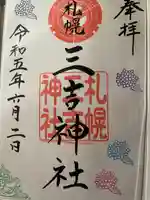 奉拝
札幌
三吉神社
札幌
三吉
神社
令和五年六月二日